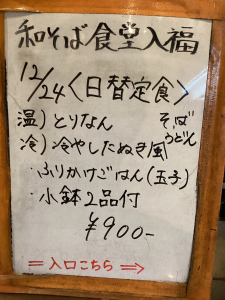 和そば食堂入福
12/24〈日替定食〉
温)とりなん そば
冷)冷やしたぬき風 うどん
・ふりかけごはん(玉子)
・小鉢2品付
¥900-
＝入口こちら⇒